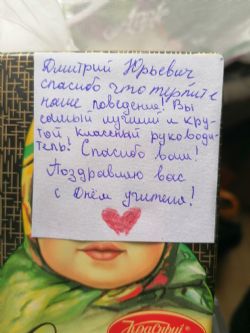 Дмитрий Юрьевич
спасибо что терпите
наше поведение! Вы
самый лучший и кру-
той, классный руководи-
тель! Спасибо вам!
Поздравляю вас
с Днём учителя!